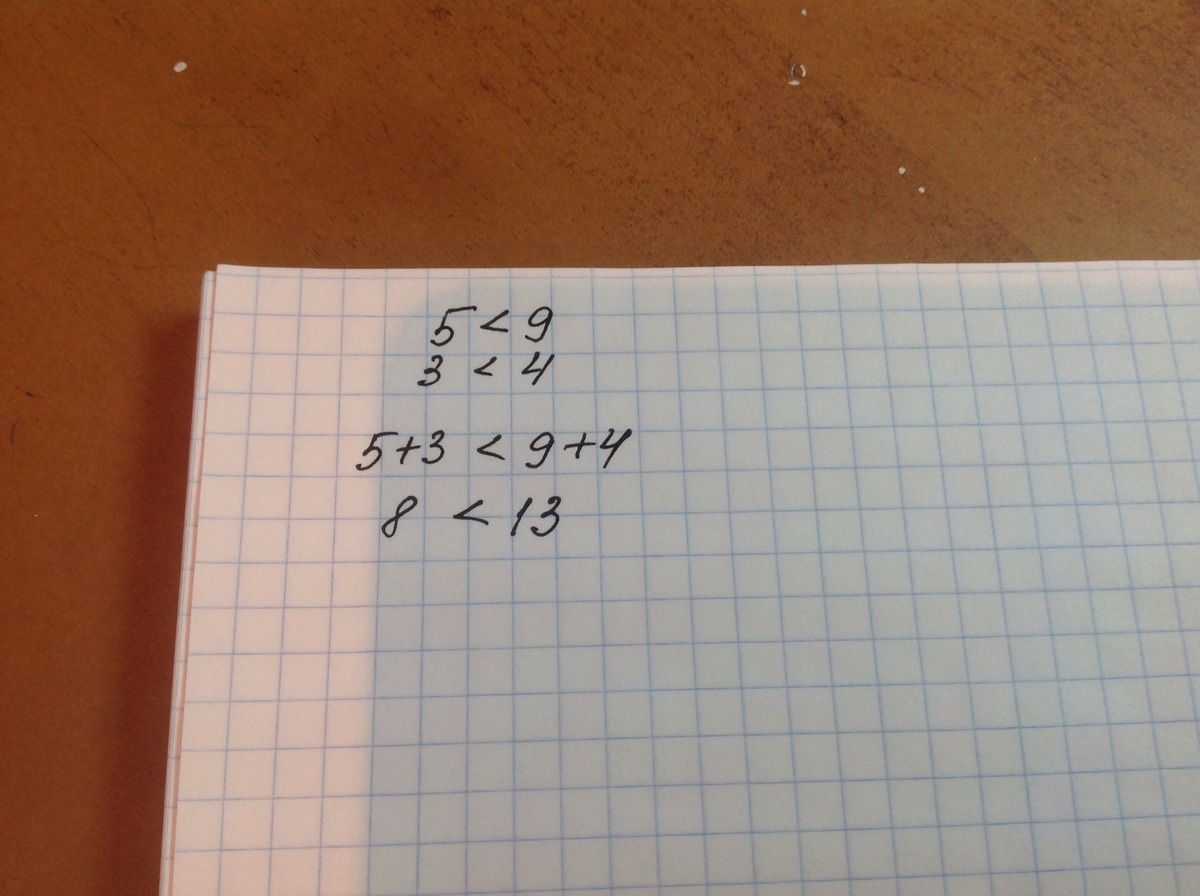 5 < 9
3 < 4
5+3 < 9+4
8 < 13